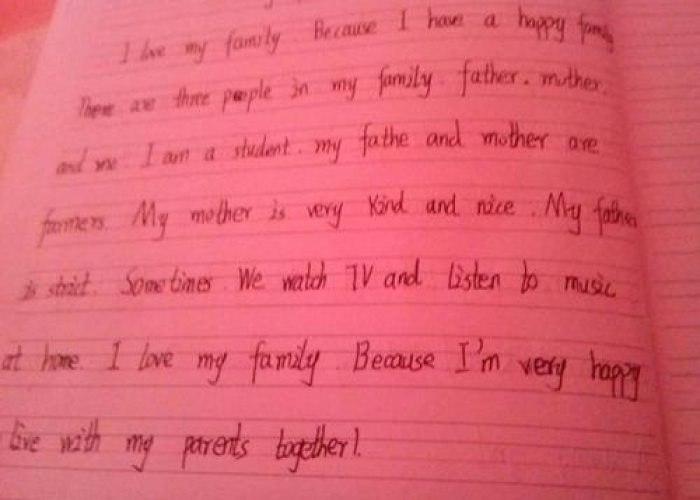 I love my family. Because I have a happy family
There are three people in my family. father. mother.
and me. I am a student. my fathe and mother are
farmers. My mother is very kind and nice. My father
is strict. Sometimes We watch TV and listen to music
at home. I love my family. Because I'm very happy
live with my parents together!